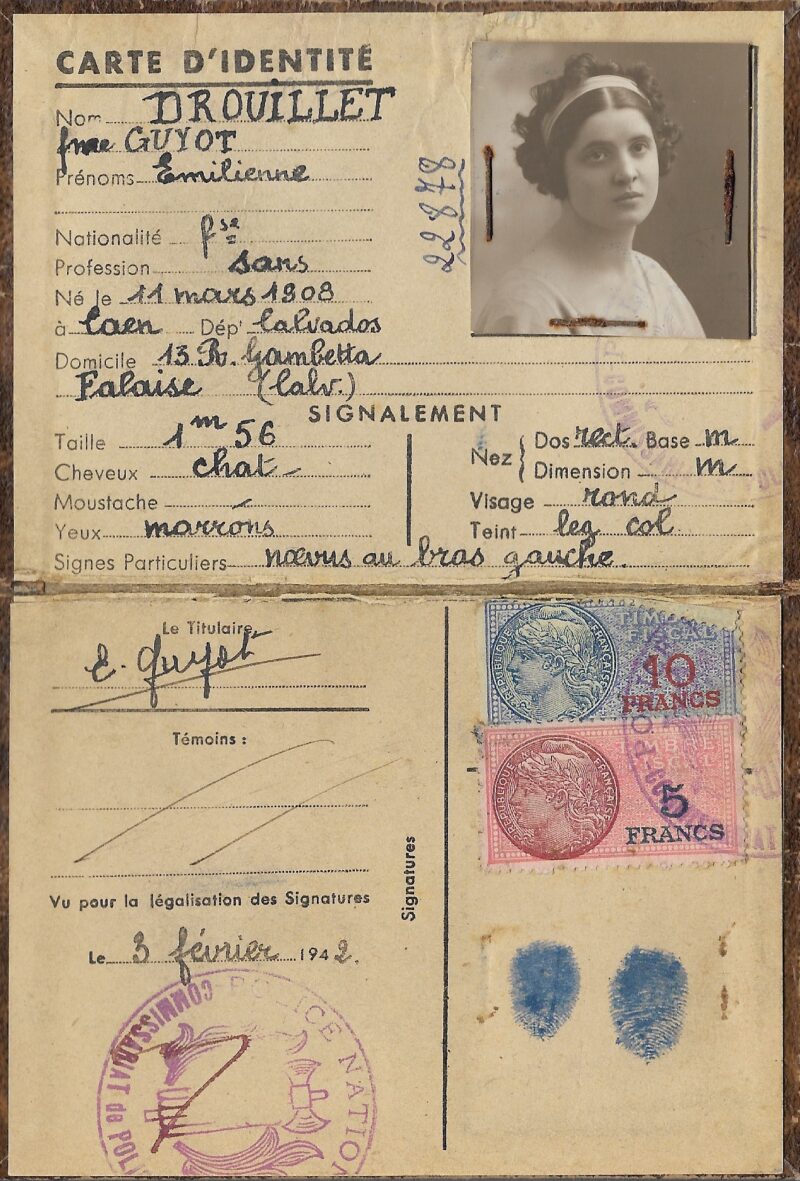 CARTE D'IDENTITÉ
Nom DROUILLET
fme GUYOT
Prénoms Emilienne
22878
Nationalité fse
Profession sans
Né le 11 mars 1908
à Caen Dépt Calvados
Domicile 13 R. Gambetta
Falaise (Calv.)
SIGNALEMENT
Taille 1m 56
Cheveux chat
Moustache
Yeux marrons
Nez Dos rect. Base m
Dimension m
Visage rond
Teint leg col
Signes Particuliers nœvus au bras gauche.
Le Titulaire,
E. Guyot
Témoins :
Vu pour la légalisation des Signatures
Le 3 février 1942.
Signatures
RÉPUBLIQUE FRANÇAISE
TIMBRE FISCAL
10
FRANCS
RÉPUBLIQUE FRANÇAISE
5
FRANCS
POLICE NATION
COMMISSARIAT de POL